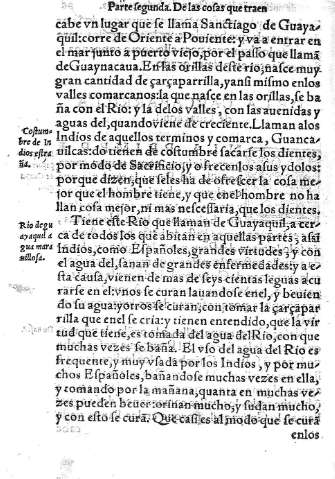 Parte segunda. De las cosas que traen
cabe vn lugar que se llama Sanctiago de Guaya-
quil: corre de Oriente a Poniente: y va a entrar en
el mar junto a puerto viejo, por el passo que llamā
de Guaynacaua. En las orillas deste rio, nasce muy
gran cantidad de çarçaparrilla, y ansi mismo enlos
valles comarcanos: la que nasce en las orillas, se ba
ña con el Rio: y la delos valles, con las auenidas y
aguas del, quando viene de creciente. Llaman alos
Indios de aquellos terminos y comarca, Guanca-
uilcas: do tienen de costumbre sacarse los dientes,
por modo de Sacrificio, y ofrecenlos a sus ydolos:
porque dizen, que seles ha de ofrescer la cosa me-
jor que el hombre tiene, y que enel hombre no ha
llan cosa mejor, ni mas nescessaria, que los dientes.
Costum
bre de In
dios estra
ña.
Tiene este Rio que llaman de Guayaquil, a cer-
ca de todos los que abitan en aquellas partes, assi
Indios, como Españoles, grandes virtudes, y con
el agua del, sanan de grandes enfermedades: y a e-
sta causa, vienen de mas de seys cientas leguas a cu
rarse en el: vnos se curan lauandose enel, y beuien
do su agua: y otros se curan, con tomar la çarçapar
rilla que enel se cria: y tienen entendido, que la vir
tud que tiene, es tomada del agua del Rio, con que
muchas vezes se baña. El vso del agua del Rio es
frequente, y muy vsada por los Indios, y por mu-
chos Españoles, bañandose muchas vezes en ella,
y tomando por la mañana, quanta en muchas ve-
zes pueden beuer: orinan mucho, y sudan mucho,
y con esto se curā. Que casi es al modo que se curā
enlos
Rio de gu
ayaquil a
gua mara
uillosa.